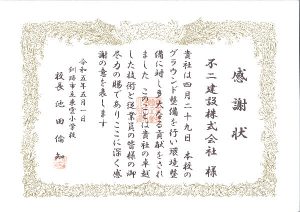 感謝状
不二建設株式会社 様
貴社は四月二十九日 本校の
グラウンド整備を行い環境整
備に対し多大なる貢献をされ
ました このことは貴社の卓越
した技術と従業員の皆様の御
尽力の賜であり ここに深く感
謝の意を表します
令和五年五月一日
釧路市立東雲小学校
校長 池田倫